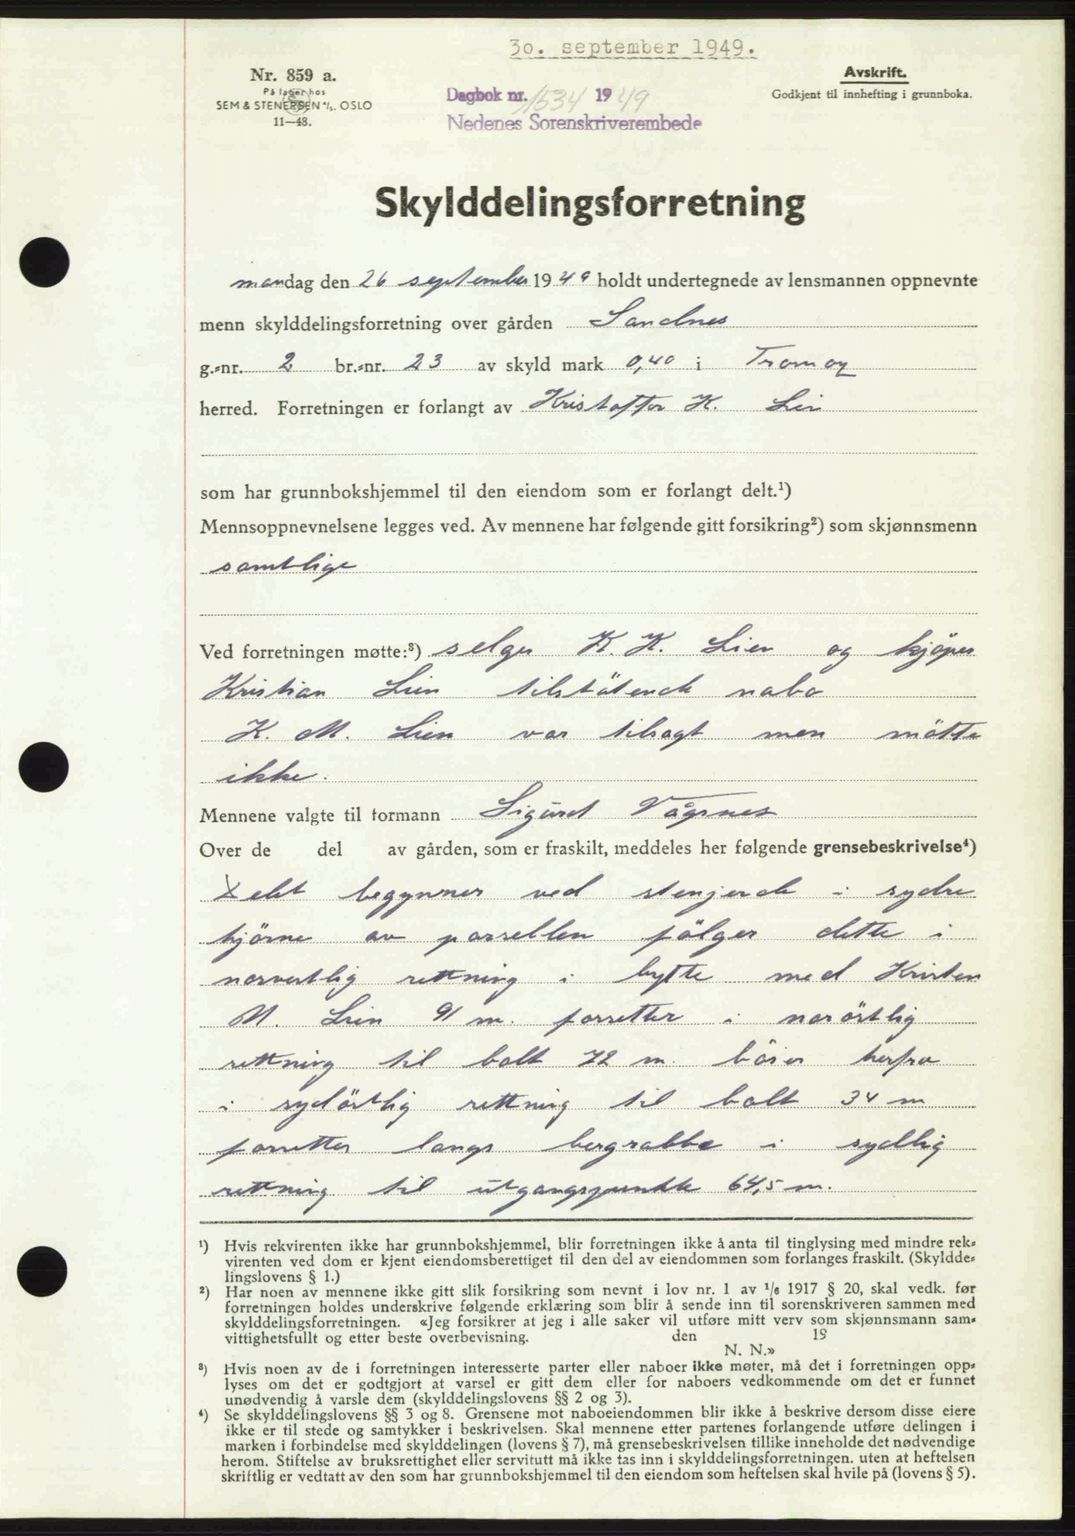 30. september 1949.
Nr. 859 a.
På lager hos
SEM & STENERSEN A/S. OSLO
11-48.
Dagbok nr. 1534 1949
Nedenes Sorenskriverembede
Avskrift.
Godkjent til innhefting i grunnboka.
Skylddelingsforretning
mandag den 26 september 1949 holdt undertegnede av lensmannen oppnevnte
menn skylddelingsforretning over gården Sandnes
g.-nr. 2 br.-nr. 23 av skyld mark 0,40 i Tromøy
herred. Forretningen er forlangt av Kristoffer K. Lien
som har grunnbokshjemmel til den eiendom som er forlangt delt.¹)
Mennsoppnevnelsene legges ved. Av mennene har følgende gitt forsikring²) som skjønnsmenn
samtlige
Ved forretningen møtte:³) selger K. K. Lien og kjöper
Kristian Lien tilstötende nabo
K. M. Lien var tilsagt men mötte
ikke.
Mennene valgte til formann Sigurd Vågsnes
Over de del av gården, som er fraskilt, meddeles her følgende grensebeskrivelse⁴)
X delt begynner ved stengjerde i sydre
hjörne av parsellen fölger dette i
norvestlig rettning i bytte med Kristen
M. Lien 91 m. forsetter i noröstlig
rettning til bolt 72 m. böier herfra
i sydöstlig rettning til bolt 34 m
forsetter langs bergrabbe i sydlig
rettning til utgangspunkte 64,5 m.
¹) Hvis rekvirenten ikke har grunnbokshjemmel, blir forretningen ikke å anta til tinglysing med mindre rek-
virenten ved dom er kjent eiendomsberettiget til den del av eiendommen som forlanges fraskilt. (Skyldde-
lingslovens § 1.)
²) Har noen av mennene ikke gitt slik forsikring som nevnt i lov nr. 1 av 1/6 1917 § 20, skal vedk. før
forretningen holdes underskrive følgende erklæring som blir å sende inn til sorenskriveren sammen med
skylddelingsforretningen. «Jeg forsikrer at jeg i alle saker vil utføre mitt verv som skjønnsmann sam-
vittighetsfullt og etter beste overbevisning. den 19
N. N.»
³) Hvis noen av de i forretningen interesserte parter eller naboer ikke møter, må det i forretningen opp-
lyses om det er godtgjort at varsel er gitt dem eller for naboers vedkommende om det er funnet
unødvendig å varsle dem (skylddelingslovens §§ 2 og 3).
⁴) Se skylddelingslovens §§ 3 og 8. Grensene mot naboeiendommen blir ikke å beskrive dersom disse eiere
ikke er til stede og samtykker i beskrivelsen. Skal mennene etter partenes forlangende utføre delingen i
marken i forbindelse med skylddelingen (lovens § 7), må grensebeskrivelsen tillike inneholde det nødvendige
herom. Stiftelse av bruksrettighet eller servitutt må ikke tas inn i skylddelingsforretningen. uten at heftelsen
skriftlig er vedtatt av den som har grunnbokshjemmel til den eiendom som heftelsen skal hvile på (lovens § 5).